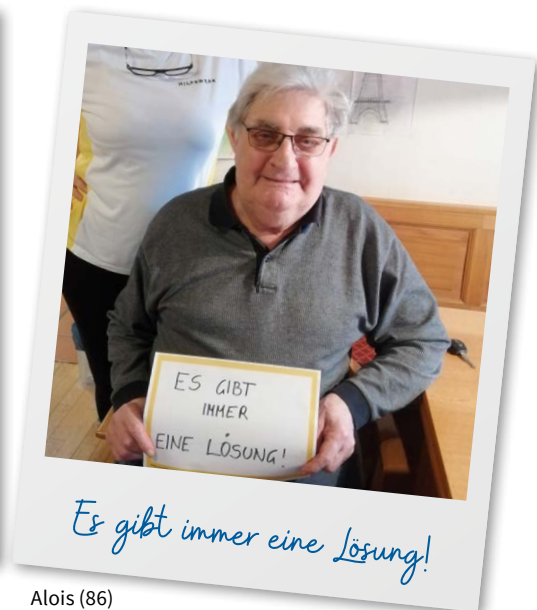 HILFSWERK
ES GIBT
IMMER
EINE LÖSUNG!
Es gibt immer eine Lösung!
Alois (86)